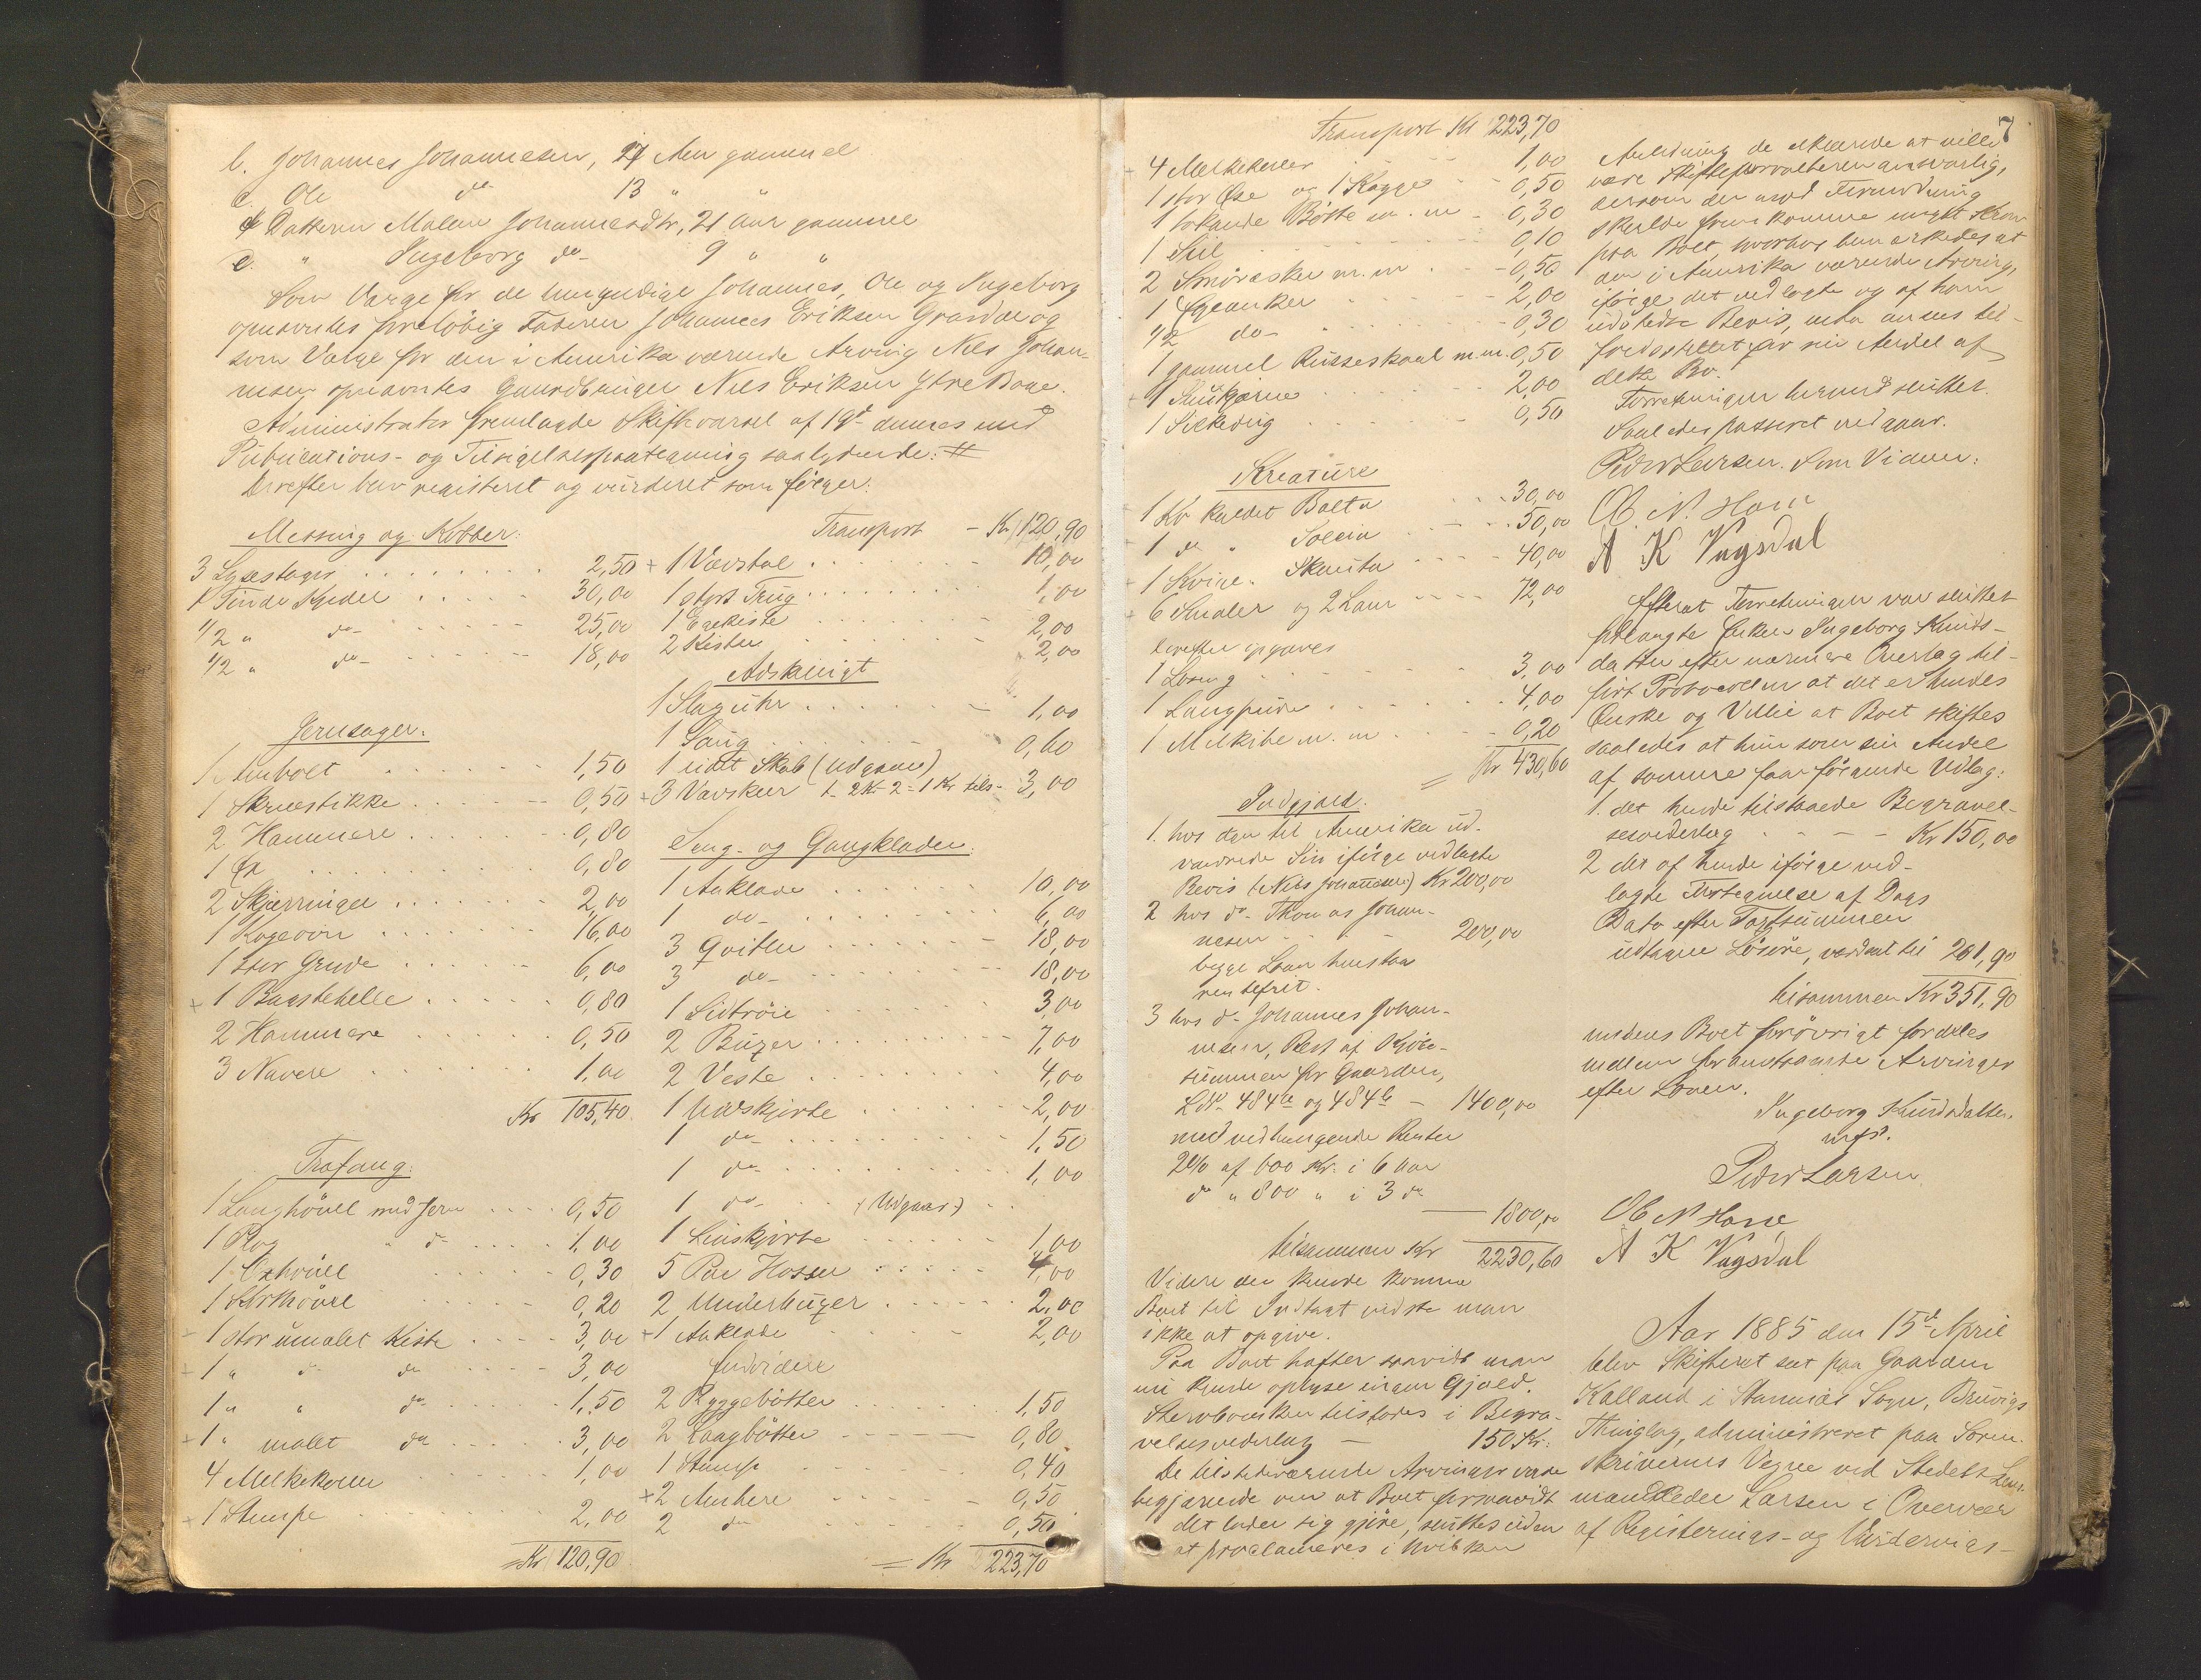 b. Johannes Johannesen, 17 Aar gammel
c. Ole do 13 " "
d Datteren Malene Johannesdtr, 21 aar gammel
e. " Ingeborg do 9 " "
Som Værge for de umyndige Johannes, Ole og Ingeborg
opnævntes foreløbig Faderen Johannes Eriksen og
som Værge for den i Amerika værende Arving Nils Johan-
nesen opnævntes Gaardbruger Nils Eriksen Ytre Boge.
Administrator fremlagde Skiftevarsel af 19de dennes med
Publications- og Tilsigelsespaategning saalydende: #
Derefter blev registeret og vurderet som følger:
Messing og Kobber:
3 Lysestager 2,50
1 Tønde Kjedel 30,00
1/2 " do 25,00
1/2 " do 18,00
Jernsager.
1 Ambolt 1,50
1 Skruestikke 0,50
2 Hammere 0,80
1 Øx 0,80
2 Skjæringer 2,00
1 Kogeovn 16,00
1 stor Gryde 6,00
+ 1 Bagstehelle 0,80
2 Hammere 0,50
3 Navere 1,00
Kr 105,40
Træfang:
1 Langhøvel med Jern 0,50
1 Plog " do 1,00
1 Oxhøvel 0,30
1 0,20
1 stor umalet Kiste 3,00
1 " do do 3,00
1 " " do 1,50
+ 1 " malet do 3,00
4 Melkekoller 1,00
+ 1 Stampe 2,00
= Kr 120,90
Transport - Kr 120,90
+ 1 Vævstol 10,00
1 stort Trug 1,00
1 Egekiste 2,00
2 Kister 2,00
Adskilligt
1 Slaguhr 1,00
1 Saug 0,60
1 lidet Skab (udgaaer)
+ 3 Vævskeer 1- 2Kr 2- 1 Kr tils- 3,00
Seng- og Gangklæder.
1 Aaklæde 10,00
1 do 6,00
3 Qvitler 18,00
3 do 18,00
1 Sidtrøie 3,00
2 Buxer 7,00
2 Veste 4,00
1 Uldskjorte 2,00
1 do 1,50
1 do 1,00
1 do (Udgaar)
1 Linskjorte 1,00
5 Par Hosser 4,00
2 Underbuxer 2,00
+ 1 Aaklæde 2,00
Endvidere
2 Ryggebøtter 1,50
2 Laagbøtter 0,80
1 Stampe 0,40
+ 2 Ambere 0,50
2 do 0,50
= Kr 223,70
7
Transport Kr 223,70
+ 4 Melkekoller 1,00
1 stor Øse og 1 Kagge 0,50
1 Bøtte m. m 0,30
1 Sil 0,10
2 Smøræsker m. m 0,50
1 Ølanker 2,00
1/2 do 0,30
1 gammel m.m. 0,50
+ 1 2,00
1 0,50
Kreature
1 Ko kaldet Balta 30,00
1 do " 50,00
1 Kvige " 40,00
+ 6 Smaler og 2 Lam 72,00
Derefter opgaves
1 3,00
1 4,00
1 m. m 0,20
= Kr 430,60
Indgjæld.
1. hos den til Amerika ud-
vandrede Søn ifølge vedlagte
Bevis (Nils Johannesen) Kr 200,00
2 hos do Thomas Johan-
nesen 200,00
begge Laan henstaa
rentefrit.
3 hos do Johannes Johan-
nesen, Rest af Kjøbe-
summen for Gaarden,
LN. 484a og 484b - 1400,00
med vedhængende Renter
2% af 600 Kr. i 6 Aar
do " 800 " i 3 do
1800,00
tilsammen Kr 2230,60
Videre der kunde komme
Boet til Indtægt vidste man
ikke at opgive.
Paa Boet hæfter saavidt man
nu kunde oplyse ingen Gjæld.
Stervboenken tilstodes i Begra-
velsesvederlag - 150 Kr.
De tilstedeværende Arvinger vare
begjærende om at Boet forsaavidt
det lader sig gjøre, sluttes uden
at proclameres i hvilken
Anledning de erklærede at ville
være Skifteforvalteren ansvarlig,
dersom der mod Formodning
skulde fremkomme noget Krav
paa Boet, hvorhos bemærkedes at
den i Amerika værende Arving,
ifølge det vedlagte og af ham
udstedte Bevis, maa ansees til-
fredsstillet for sin Andel af
dette Bo.
Forretningen hermed sluttet.
Saaledes passeret vedgaar.
Peder Larsen. Som Vidner:
Ob. N. Hose
A K Vagsdal
Efterat Forretningen var sluttet
forlangte Enken Ingeborg Knuds-
datter efter nærmere Overlæg til-
ført Protocollen at det er hendes
Ønske og Villie at Boet skiftes
saaledes at hun som sin Andel
af samme faar følgende Udlæg:
1. det hende tilstaaede Begravel-
sesvederlag - Kr 150,00
2 det af hende ifølge ved-
lagte Fortegnelse af Dags
Dato efter Taxtsummen
udtagne Løsøre, værdsat til 201,90
tilsammen Kr 351,90
medens Boet forøvrigt fordeles
mellem foranstaaende Arvinger
efter Loven.
Ingeborg Knudsdatter.
m.f.P.
Peder Larsen
Ob N Hose
A K Vagsdal
Aar 1885 den 15de April
blev Skifteret sat paa Gaarden
Kalland i Stamnæs Sogn, Bruvigs
Thinglag, administreret paa Soren-
skriverens Vegne ved Stedets Lens-
mand Peder Larsen i Overvær
af Registerings- og Vurderings-